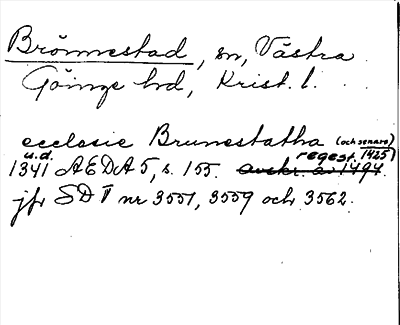 Brönnestad, sn, Västra
Göinge hd, Krist. l.
ecclesie Brunestatha (och senare)
u.d. regest. 1425)
1341 AEDA 5, s. 155. avskr. av 1494.
jfr SD V nr 3551, 3559 och 3562.